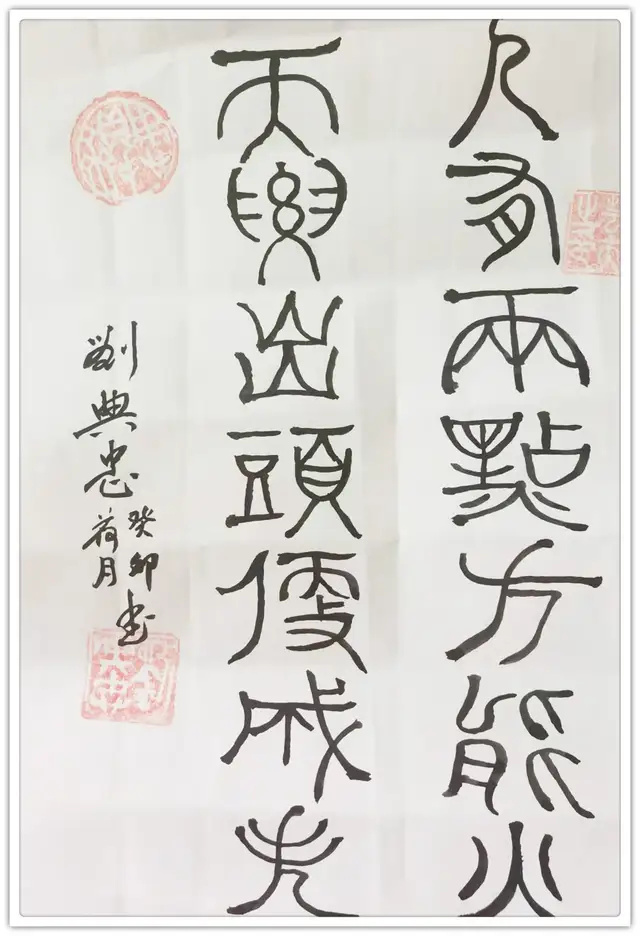 人有兩點方能火
天要出頭便成夫
劉典忠
癸卯
荷月
書